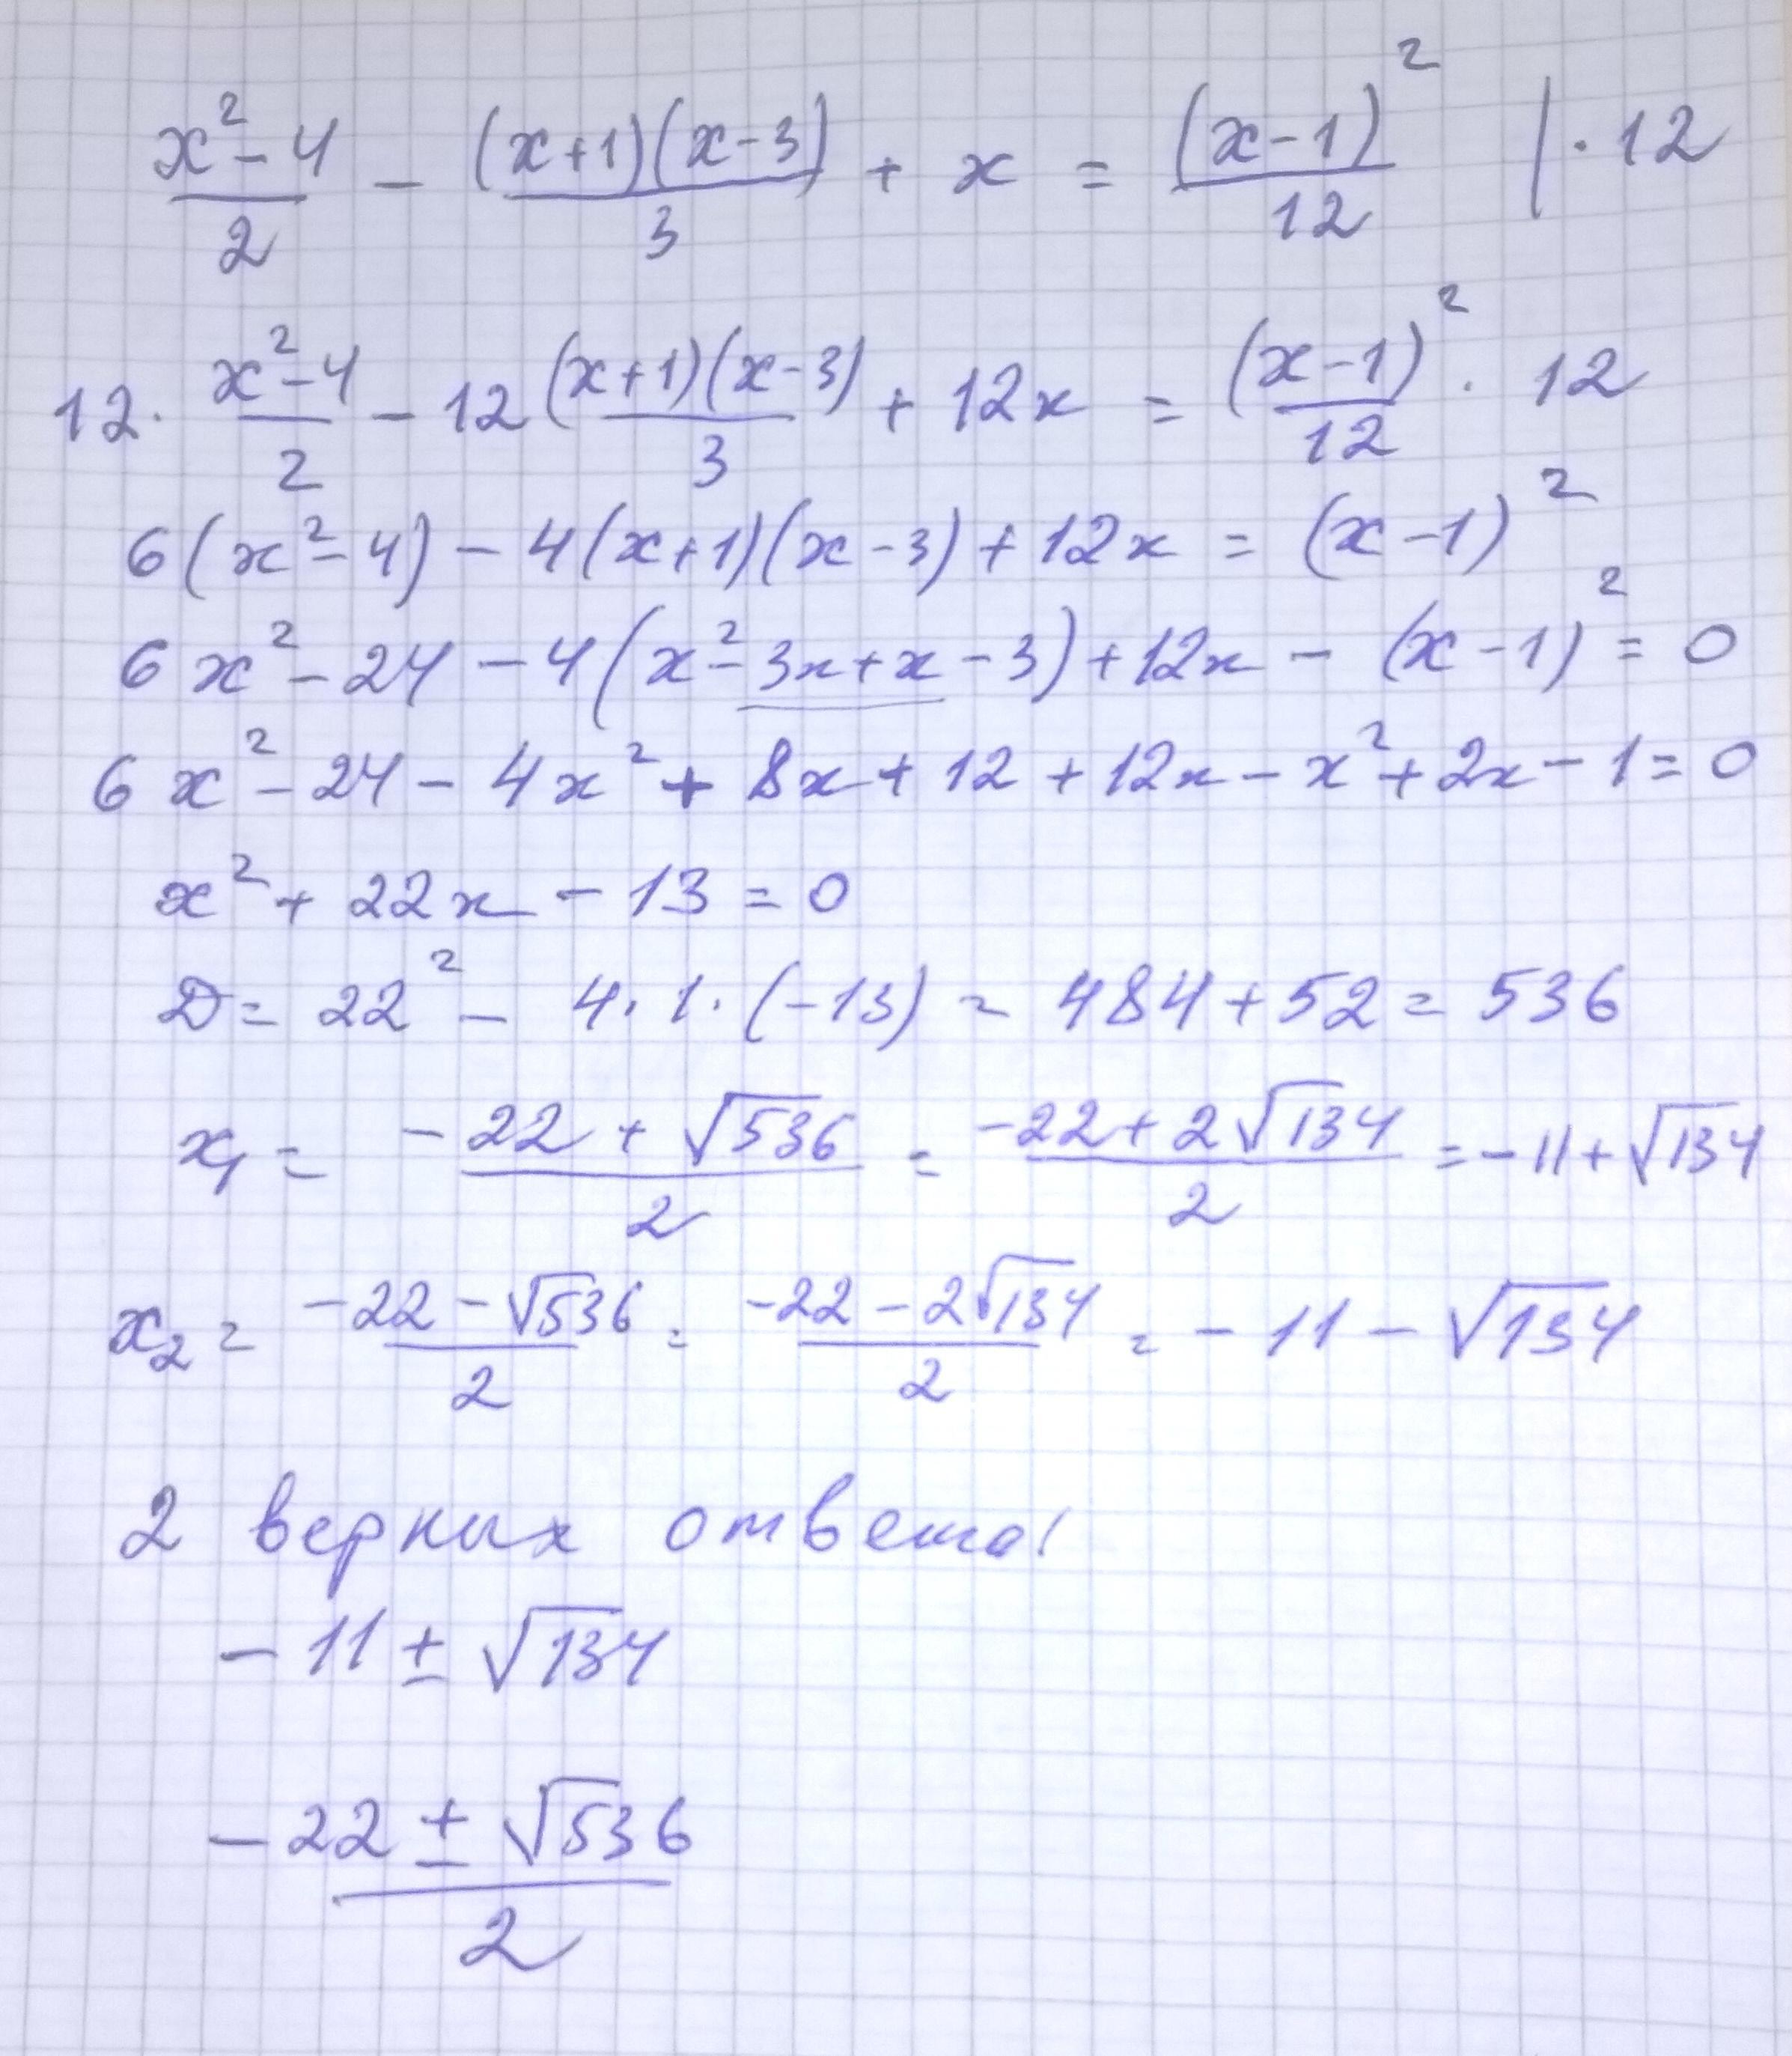 (x²-4)/2 - ((x+1)(x-3))/3 + x = (x-1)²/12 | · 12
12 · (x²-4)/2 - 12 ((x+1)(x-3))/3 + 12x = (x-1)²/12 · 12
6(x²-4) - 4(x+1)(x-3) + 12x = (x-1)²
6x² - 24 - 4(x² - 3x + x - 3) + 12x - (x-1)² = 0
6x² - 24 - 4x² + 8x + 12 + 12x - x² + 2x - 1 = 0
x² + 22x - 13 = 0
D = 22² - 4 · 1 · (-13) = 484 + 52 = 536
x₁ = (-22 + √536)/2 = (-22 + 2√134)/2 = -11 + √134
x₂ = (-22 - √536)/2 = (-22 - 2√134)/2 = -11 - √134
2 верных ответа!
-11 ± √134
(-22 ± √536)/2